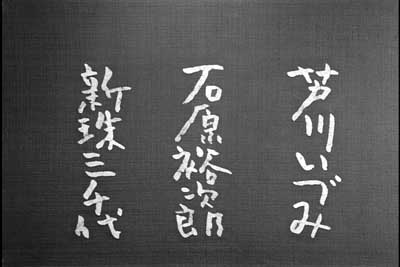 芦川いづみ
石原裕次郎
新珠三千代